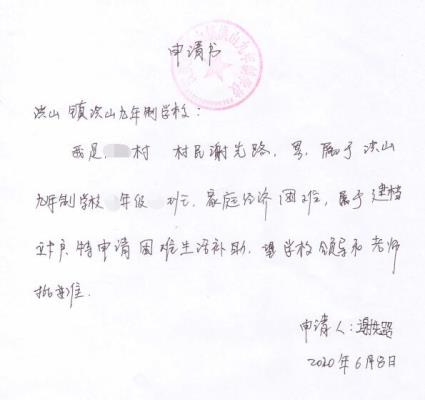 申请书
洪山九年制学校
洪山镇洪山九年制学校:
我是 村 村民谢先路,男,属于洪山
九年制学校 年级 班,家庭经济困难,属于建档
立卡户.特申请困难生活补助,望学校领导和老师
批准.
申请人:谢先路
2020年6月8日